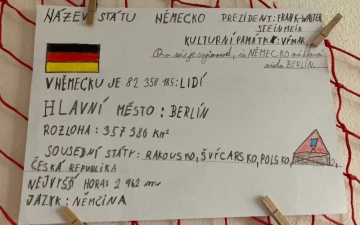 NÁZEV STÁTU NĚMECKO PREZIDENT: FRANK-WALTER
STEINMEIR
KULTURNÍ PAMÁTKY: VÝMAR
že NĚMECKO
BERLÍN
V NĚMECKU JE 82 358 185: LIDÍ
HLAVNÍ MĚSTO: BERLÍN
ROZLOHA: 357 386 KM²
SOUSEDNÍ STÁTY: RAKOUSKO, ŠVÍCARSKO, POLSKO,
ČESKÁ REPUBLIKA
NEJVYŠŠÍ HORA: 2 962 m
JAZYK: NĚMČINA